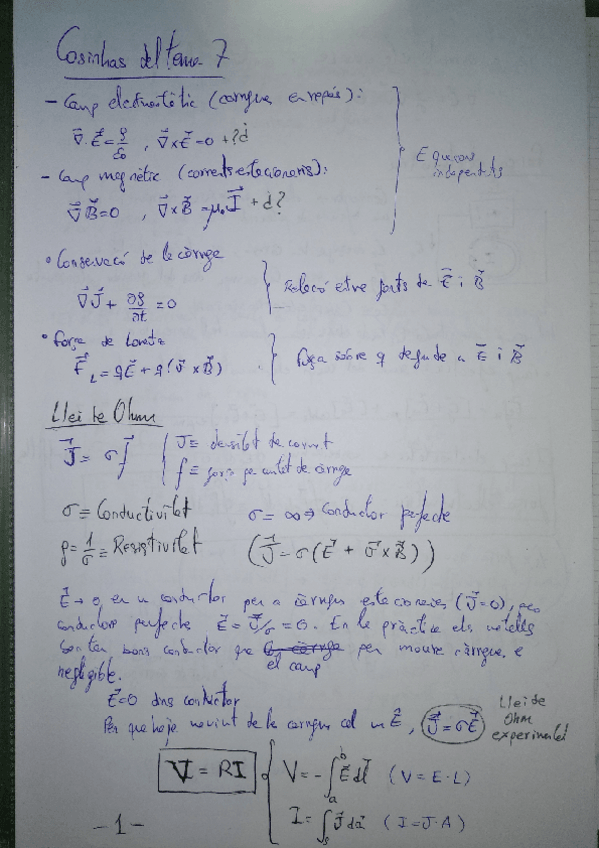 Cosinhas del tema 7
- Camp electrostàtic (càrregues en repòs):
∇⃗·E⃗ = ρ/ε₀ , ∇⃗×E⃗ = 0 + ?
- Camp magnètic (corrents estacionaris):
Equacions independents
∇⃗B⃗ = 0 , ∇⃗×B⃗ = μ₀J⃗ + ?
• Conservació de la càrrega
∇⃗J⃗ + ∂ρ/∂t = 0
Relació entre fonts de E⃗ i B⃗
• Força de Lorentz
F⃗_L = qE⃗ + q(v⃗ × B⃗)
Força sobre q deguda a E⃗ i B⃗
Llei de Ohm
J⃗ = σf⃗
J ≡ densitat de corrent
f ≡ força per unitat de càrrega
σ ≡ Conductivitat σ = ∞ ⇒ Conductor perfecte
ρ = 1/σ ≡ Resistivitat (J⃗ = σ(E⃗ + v⃗ × B⃗))
E⃗ → 0 en un conductor per a càrregues estacionaries (J⃗ = 0), però
conductors perfecte E⃗ = J⃗/σ = 0. En la pràctica els metalls
son tan bons conductor que el camp per moure càrregues e
negligible.
E⃗ = 0 dins conductor
Per que haja moviment de la càrregues cal un E⃗, J⃗ = σE⃗
Llei de
Ohm
experimental
V = RI
V = -∫ₐᵇ E⃗ dl⃗ (V = E·L)
I = ∫ₛ J⃗ da⃗ (I = J·A)
- 1 -